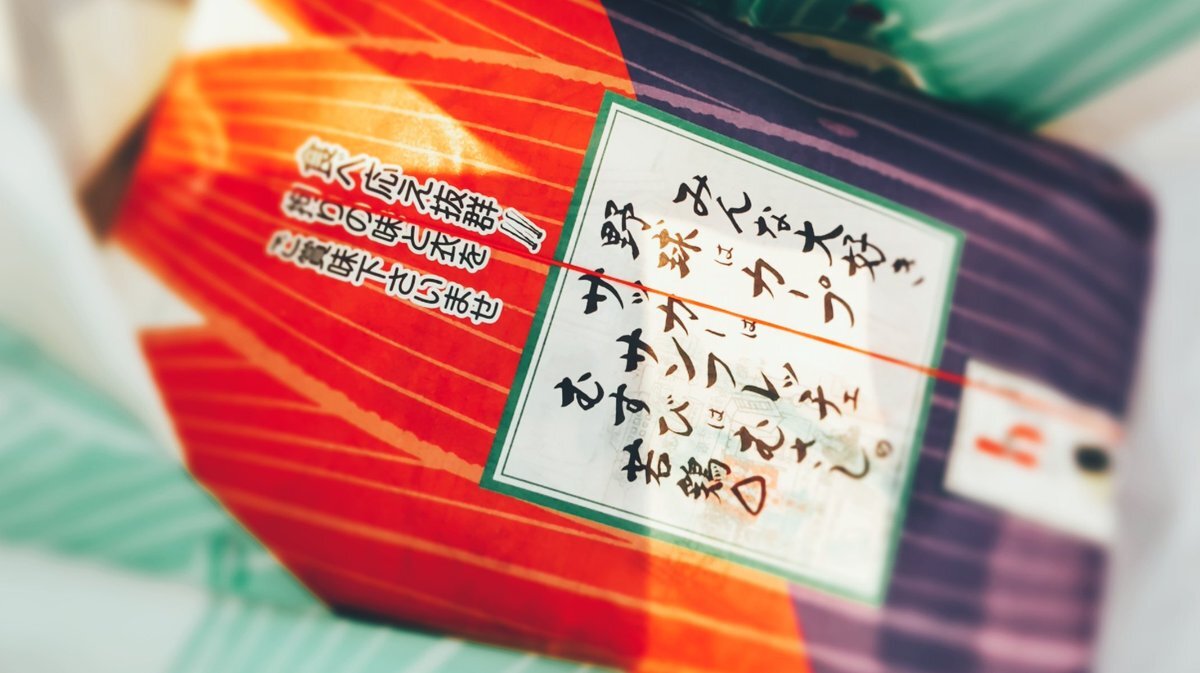 みんな大好き、
野球はカープ
サッカーはサンフレッチェ
むすびはむさし。
若鶏
食べ応え抜群!!!
拘りの味と衣を
ご賞味下さいませ
む